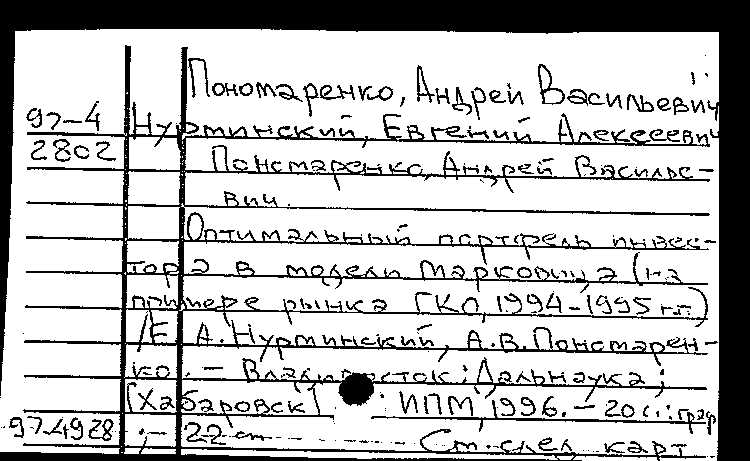 Пономаренко, Андрей Васильевич
97-4 Нурминский, Евгений Алексеевич
2802 Пономаренко, Андрей Василье-
вич.
Оптимальный портфель инвес-
тора в модели Марковица (на
примере рынка ГКО, 1994-1995 г.г.)
/Е. А. Нурминский, А.В. Пономарен-
ко. - Владивосток: Дальнаука;
[Хабаровск] : ИПМ, 1996. - 20 с.: граф
97-4928 ;- 22 см Ст. след карт